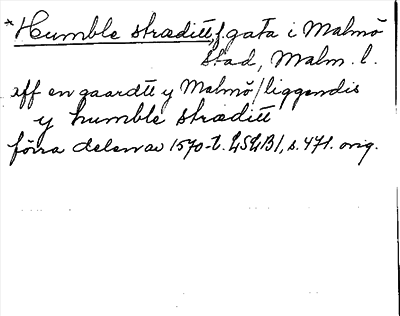 *Humble stræditt, f. gata i Malmö
stad, Malm. l.
aff en gaardtt y Malmö/liggendis
y humble stræditt
förra delen av 1570-t. LSLB1, s. 471. orig.